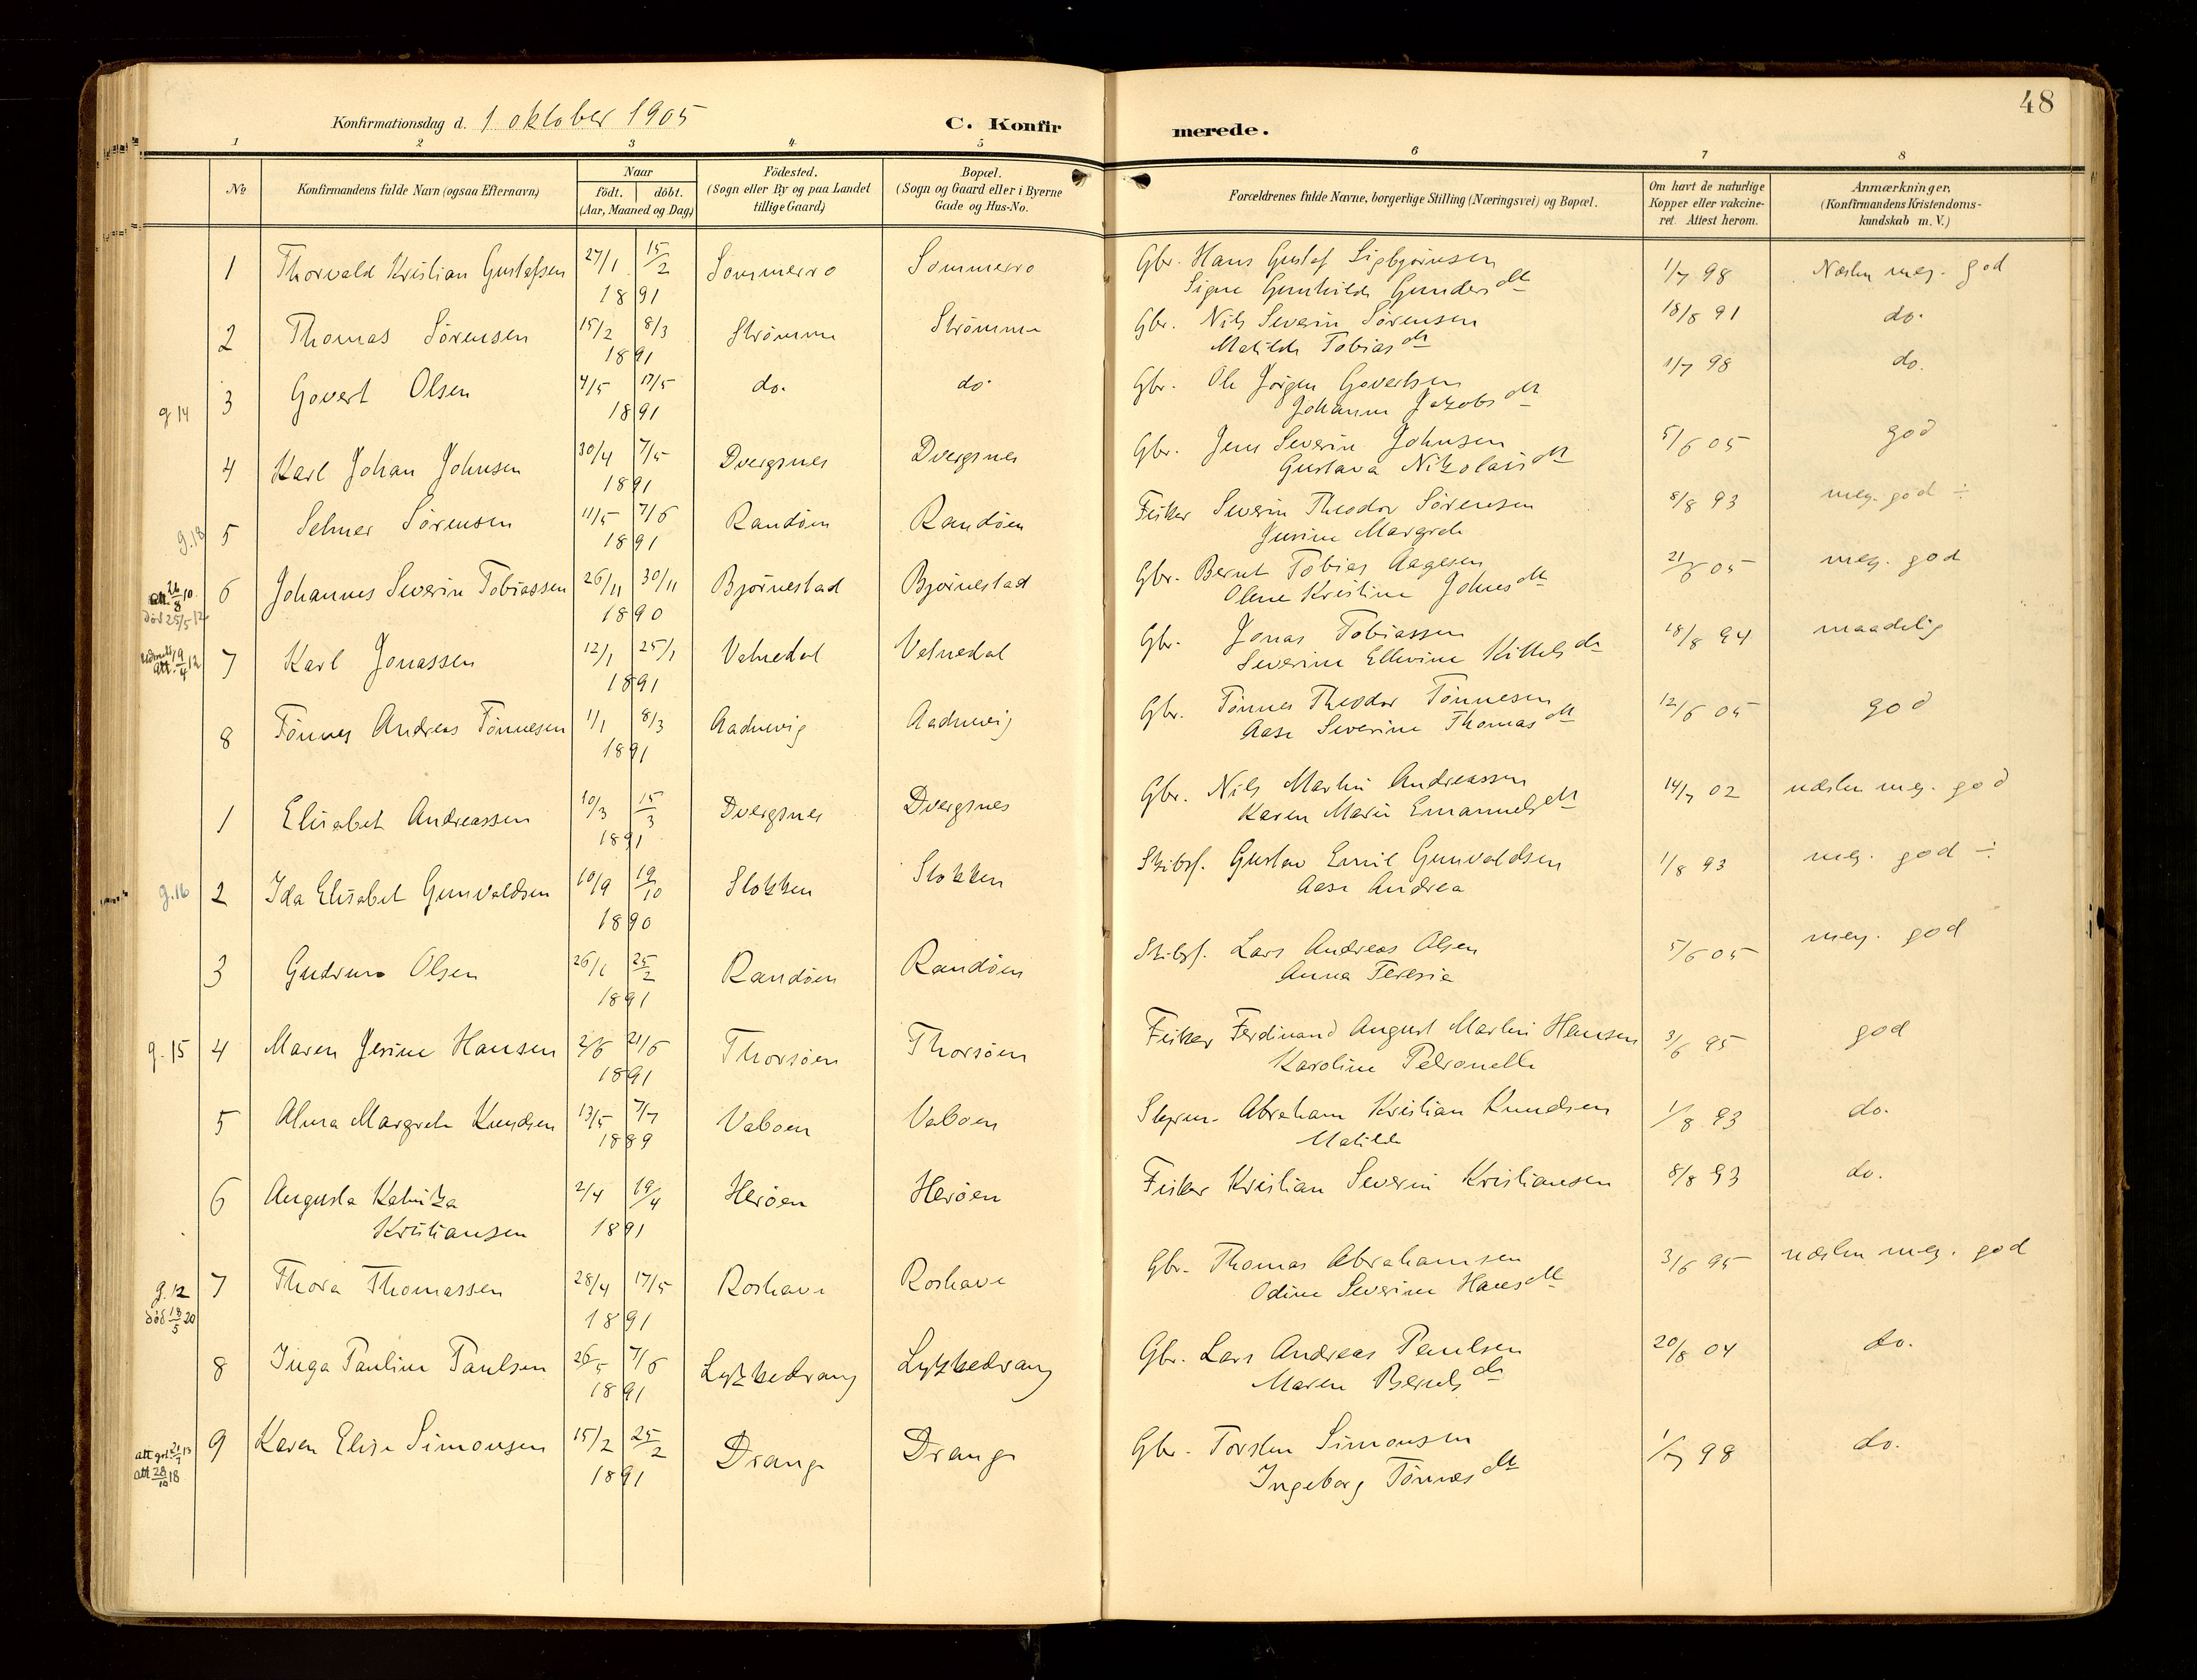 48
Konfirmationsdag d. 1 oktober 1905
C. Konfirmerede.
1 2 3 4 5 6 7 8
No
Konfirmandens fulde Navn (ogsaa Efternavn)
Naar
födt. döbt.
(Aar, Maaned og Dag)
Födested.
(Sogn eller By og paa Landet
tillige Gaard)
Bopæl.
(Sogn og Gaard eller i Byerne
Gade og Hus-No.
Forældrenes fulde Navne, borgerlige Stilling (Næringsvei) og Bopæl.
Om havt de naturlige
Kopper eller vakcine-
ret. Attest herom.
Anmærkninger,
(Konfirmandens Kristendoms-
kundskab m. V.)
1 Thorvald Kristian Gustafsen 27/1 15/2 1891 Sømmerro Sømmerro Gbr. Hans Gustaf Sigbjørnsen 1/7 98 Næsten meg. god
Signe Gunhilde Gundersdtr
2 Thomas Sørensen 15/2 8/3 1891 Strømme Strømme Gbr. Nils Severin Sørensen 18/8 91 do.
Matilde Tobiasdtr
g 14 3 Govert Olsen 4/5 17/5 1891 do. do. Gbr. Ole Jørgen Govertsen 1/7 98 do.
Johanne Jakobsdtr
4 Karl Johan Johnsen 30/4 7/5 1891 Dvergsnes Dvergsnes Gbr. Jens Severin Johnsen 5/6 05 god
Gustava Nikolaisdtr
g. 18 5 Selmer Sørensen 11/5 7/6 1891 Randøen Randøen Fisker Severin Theodor Sørensen 8/8 93 meg. god ÷
Jusine Margrete
att. 26/8 10. død 25/5 12 6 Johannes Severin Tobiassen 26/11 30/11 1890 Bjørnestad Bjørnestad Gbr. Bernt Tobias Aagesen 21/6 05 meg. god
Olene Kristine Johnsdtr
att. 19/4 12 7 Karl Jonassen 12/1 25/1 1891 Valnedal Valnedal Gbr. Jonas Tobiassen 18/8 94 maadelig
Severine Ellevine Kittelsdtr
8 Tønnes Andreas Tønnesen 1/1 8/3 1891 Aadnevig Aadnevig Gbr. Tønnes Theodor Tønnesen 12/6 05 god
Aase Severine Thomasdtr
1 Elisabet Andreassen 10/3 15/3 1891 Dvergsnes Dvergsnes Gbr. Nils Martin Andreassen 14/7 02 næsten meg. god
Karen Marie Emanuelsdtr
g. 16 2 Ida Elisabet Gunvaldsen 10/9 19/10 1890 Stokken Stokken Skibsf. Gustav Emil Gunvaldsen 1/8 93 meg. god ÷
Aase Andrea
3 Gudrun Olsen 26/1 25/2 1891 Randøen Randøen Skibsf. Lars Andreas Olsen 5/6 05 meg. god
Anna Teresie
g. 15 4 Maren Jesine Hansen 2/6 21/6 1891 Thorsøen Thorsøen Fisker Ferdinand August Martin Hansen 3/6 95 god
Karoline Petronelle
5 Alma Margrete Knudsen 13/5 7/7 1889 Vaboen Vaboen Abraham Kristian Knudsen 1/8 93 do.
Matilde
6 Augusta Katinka 2/4 19/4 1891 Herøen Herøen Fisker Kristian Severin Kristiansen 8/8 93 do.
Kristiansen
g. 12 død 13/5 20 7 Thora Thomassen 28/4 17/5 1891 Roshave Roshave Gbr. Thomas Abrahamsen 3/6 95 næsten meg. god
Odine Severine Hansdtr
8 Inga Pauline Paulsen 26/5 7/6 1891 Lykkedrang Lykkedrang Gbr. Lars Andreas Paulsen 20/8 04 do.
Maren Berntsdtr
att 28/10 18 9 Karen Elise Simonsen 15/2 25/2 1891 Drange Drange Gbr. Torsten Simonsen 1/7 98 do.
Ingeborg Tønnesdtr